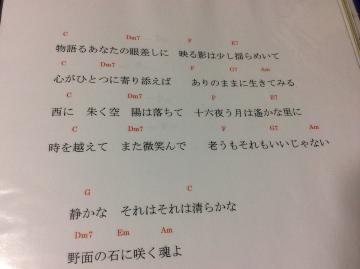 C Dm7 F E7
物語るあなたの眼差しに 映る影は少し揺らめいて
C Dm7 F G7 Am
心がひとつに寄り添えば ありのままに生きてみる
C Dm7 F E7
西に 朱く空 陽は落ちて 十六夜う月は遙かな里に
C Dm7 F G7 Am
時を越えて また微笑んで 老うもそれもいいじゃない
G C
静かな それはそれは清らかな
Dm7 Em Am
野面の石に咲く魂よ